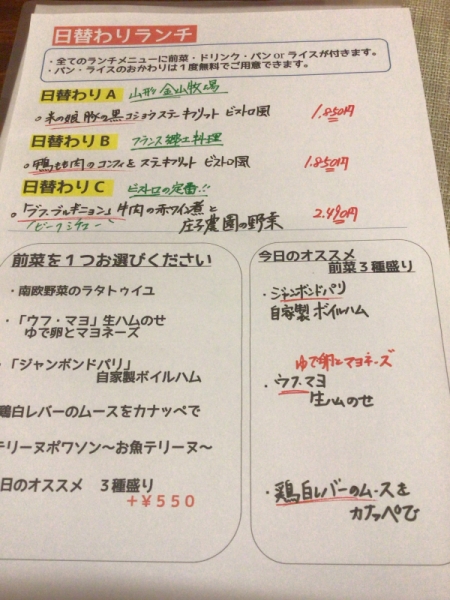 日替わりランチ
・全てのランチメニューに前菜・ドリンク・パン or ライスが付きます。
・パン・ライスのおかわりは１度無料でご用意できます。
日替わり A 山形 金山牧場
○米の娘豚の黒コショウステーキフリット ビストロ風 1.850円
日替わり B フランス郷土料理
○鴨もも肉のコンフィと ステキフリット ビストロ風 1.850円
日替わり C ビストロの定番!!
○「ブフ・ブルギニョン」牛肉の赤ワイン煮と 庄子農園の野菜 2.490円
ビーフシチュー
前菜を１つお選びください
・南欧野菜のラタトゥイユ
・「ウフ・マヨ」生ハムのせ
ゆで卵とマヨネーズ
・「ジャンボンドパリ」
自家製ボイルハム
鶏白レバーのムースをカナッペで
テリーヌポワソン～お魚テリーヌ～
日のオススメ　３種盛り
＋￥５５０
今日のオススメ
前菜３種盛り
・ジャンボンドパリ
自家製ボイルハム
ゆで卵とマヨネーズ
・ウフ・マヨ
生ハムのせ
・鶏白レバーのムースを
カナッペで